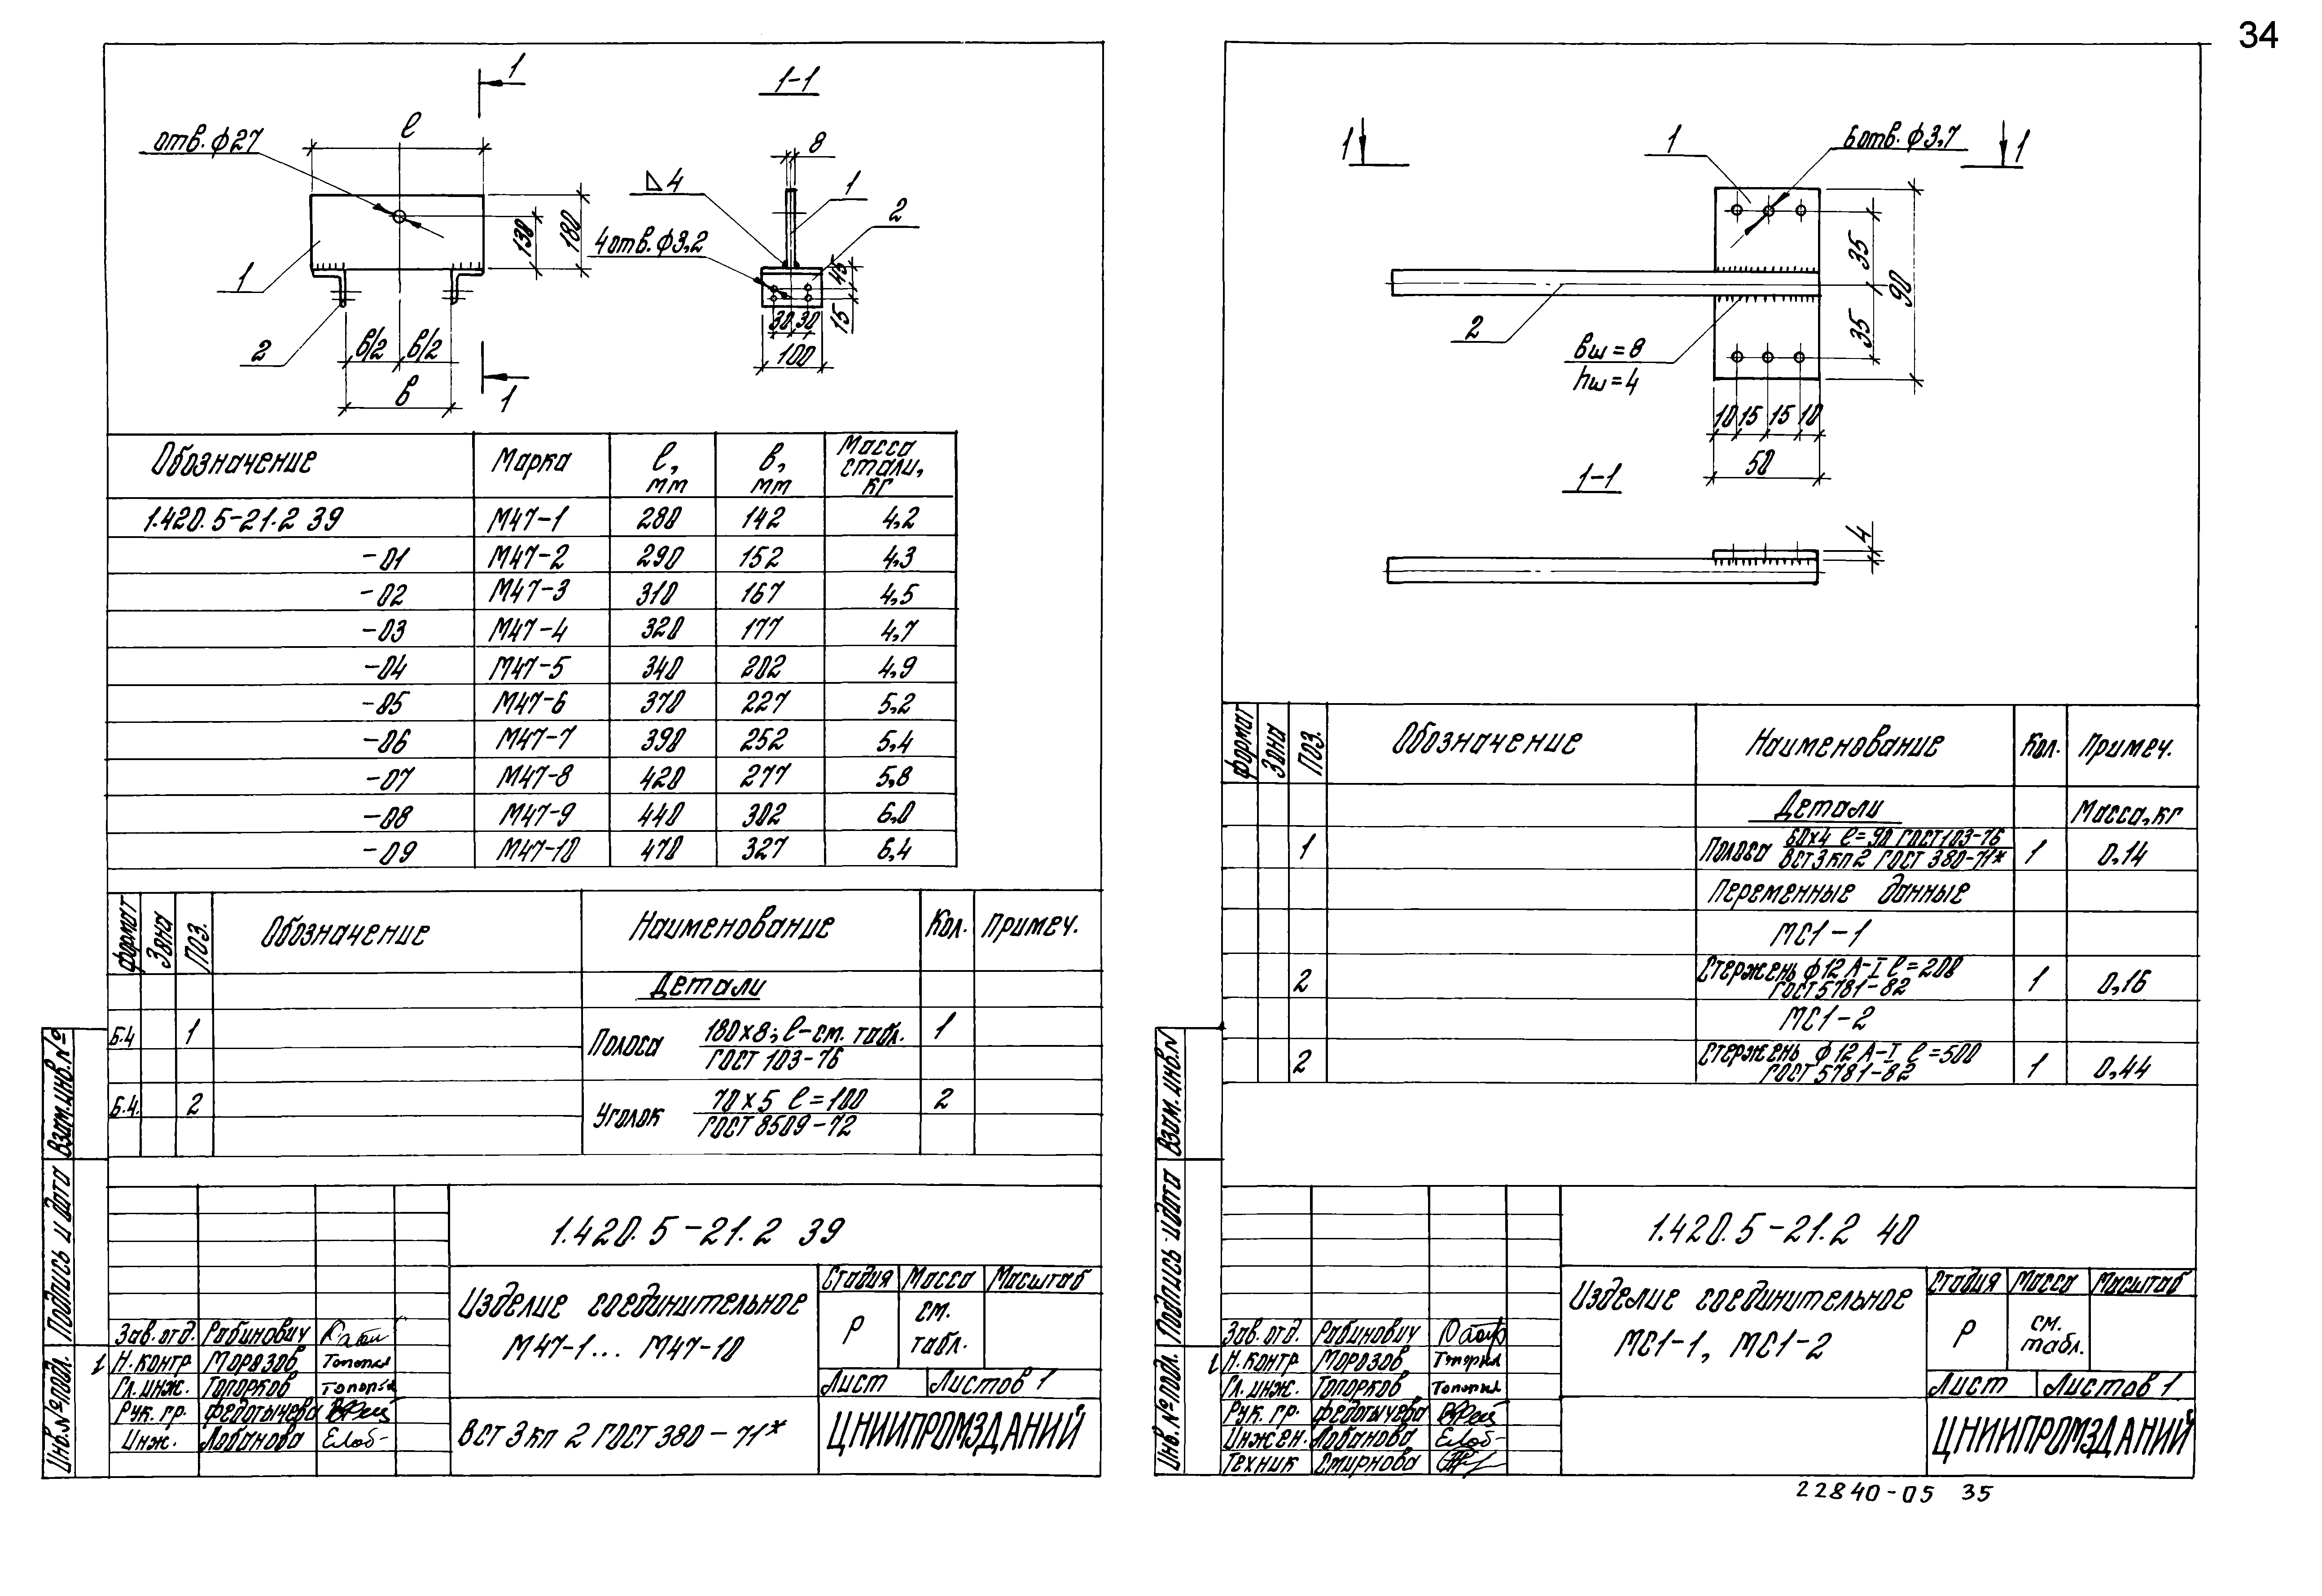 34
1
1-1
ℓ
отв. ф27
8
▷4
1
2
4 отв. ф3,2
130
180
45
15
30 30
100
1
2
в/2 в/2
в
1
Обозначение Марка ℓ, мм в, мм Масса стали, кг
1.420.5-21.2 39 М47-1 280 142 4,2
-01 М47-2 290 152 4,3
-02 М47-3 310 167 4,5
-03 М47-4 320 177 4,7
-04 М47-5 340 202 4,9
-05 М47-6 370 227 5,2
-06 М47-7 390 252 5,4
-07 М47-8 420 277 5,8
-08 М47-9 440 302 6,0
-09 М47-10 470 327 6,4
Формат Зона Поз. Обозначение Наименование Кол. Примеч.
Детали
Б.4 1 Полоса 180х8; ℓ-см. табл. 1
ГОСТ 103-76
Б.4. 2 Уголок 70х5 ℓ=100 2
ГОСТ 8509-72
Взам. инв. №
Подпись и дата
Инв. № подл.
1.420.5-21.2 39
Изделие соединительное
М47-1... М47-10
Стадия Масса Масштаб
Р см. табл.
Лист Листов 1
Зав. отд. Рабинович
Н. контр Морозов
Гл. инж. Топорков
Рук. гр. Федотычева
Инж. Лобанова
ВСт 3кп 2 ГОСТ 380-71*
ЦНИИПРОМЗДАНИЙ
1
1
6 отв. ф3,7
1
2
35
35
90
вш=8
hш=4
10 15 15 10
50
1-1
4
Формат Зона Поз. Обозначение Наименование Кол. Примеч.
Детали Масса, кг
1 Полоса 60х4 ℓ=90 ГОСТ 103-76 1 0,14
ВСт 3кп 2 ГОСТ 380-71*
Переменные данные
МС1-1
2 Стержень ф12 А-I ℓ=208 1 0,16
ГОСТ 5781-82
МС1-2
2 Стержень ф12 А-I ℓ=500 1 0,44
ГОСТ 5781-82
Взам. инв. №
Подпись и дата
Инв. № подл.
1.420.5-21.2 40
Изделие соединительное
МС1-1, МС1-2
Стадия Масса Масштаб
Р см. табл.
Лист Листов 1
Зав. отд. Рабинович
Н. контр Морозов
Гл. инж. Топорков
Рук. гр. Федотычева
Инжен. Лобанова
Техник Смирнова
ЦНИИПРОМЗДАНИЙ
22840-05 35